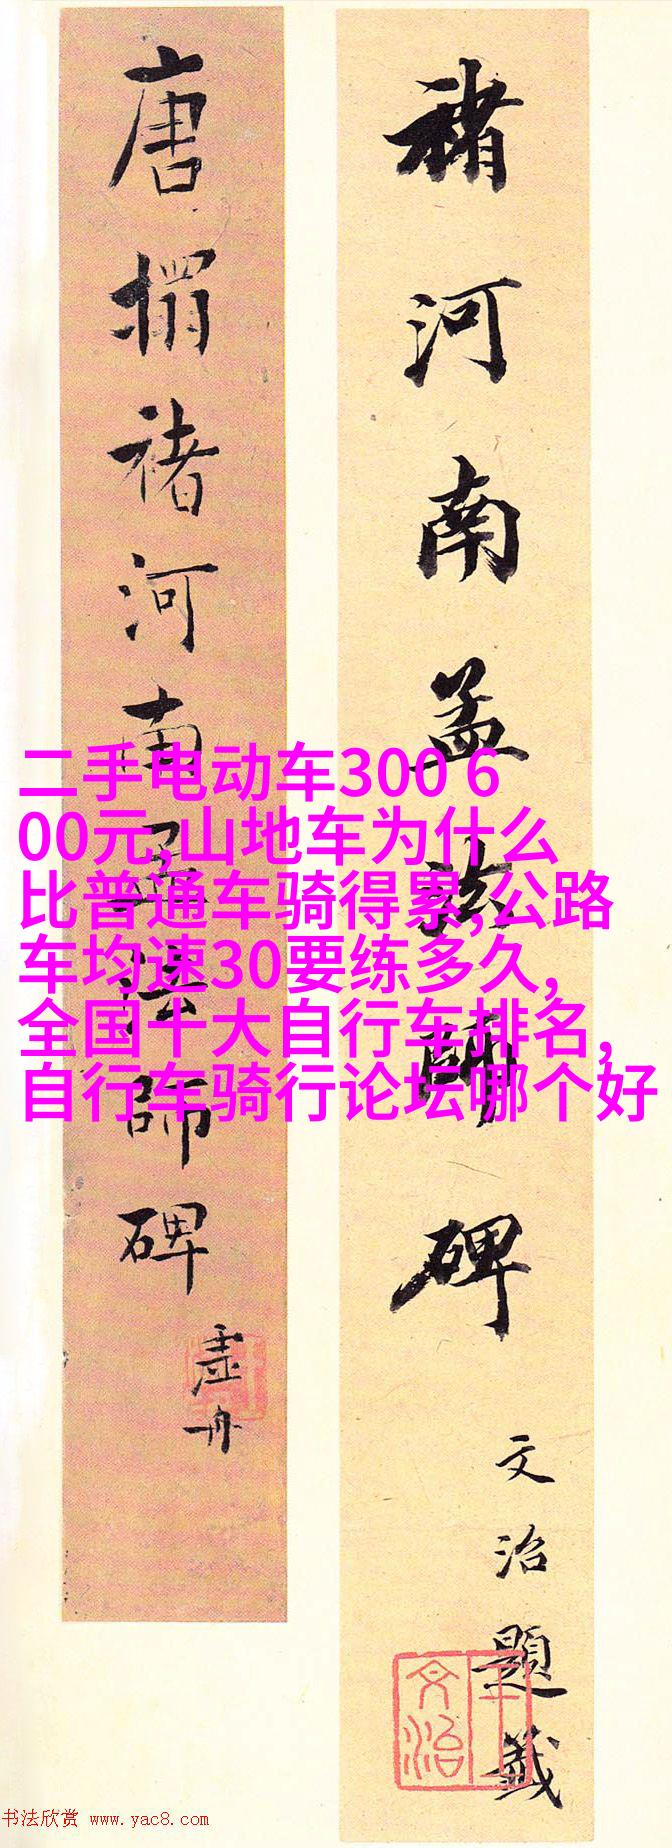 褚河南孟法師碑
文治題籤
王文治
唐搨褚河南孟法師碑
虛舟
二手电动车300 6
00元,山地车为什么
比普通车骑得累,公路
车均速30要练多久,
全国十大自行车排名,
自行车骑行论坛哪个好
书法欣赏 www.yac8.com